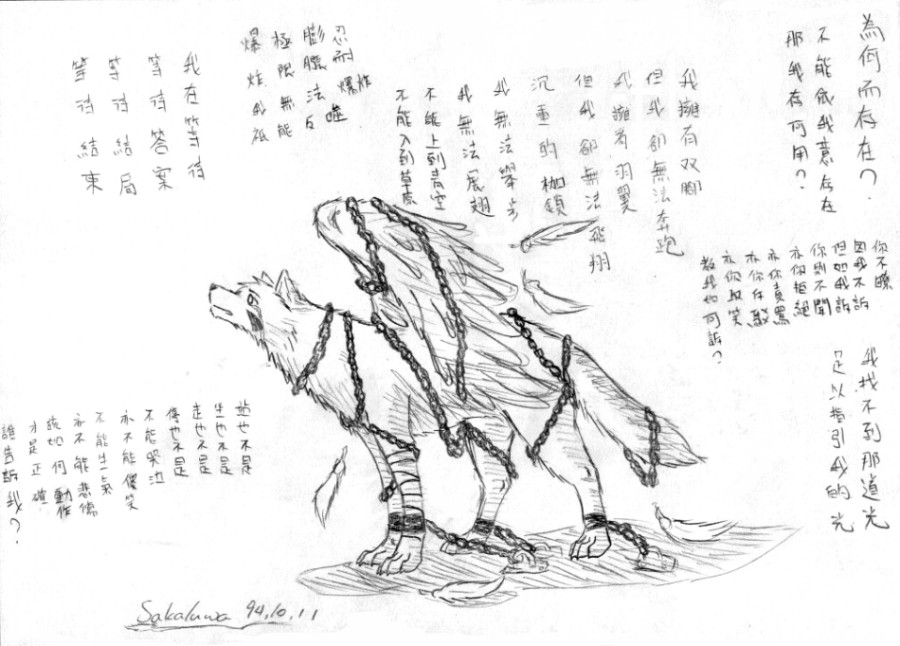 為何而存在？
不能依我意存在
那我存何用？
我擁有双腳
但我卻無法奔跑
我擁有羽翼
但我卻無法飛翔
沉重的枷鎖
我無法舉步
我無法展翅
不能上到青空
不能入到草原
忍耐 爆炸
膨脹法
極限無能
爆炸我
我在等待
等待答案
等待結局
等待結束
你不瞭
因我不訴
但如我訴
你則不聞
亦你拒絕
亦你責罵
亦你斥駁
亦你取笑
教我如何訴？
我找不到那道光
足以指引我的光
站也不是
坐也不是
走也不是
停也不是
不能哭泣
亦不能傻笑
不能生氣
亦不能悲傷
說如何動作
才是正確
誰告訴我？
Sakaluwa 94.10.11